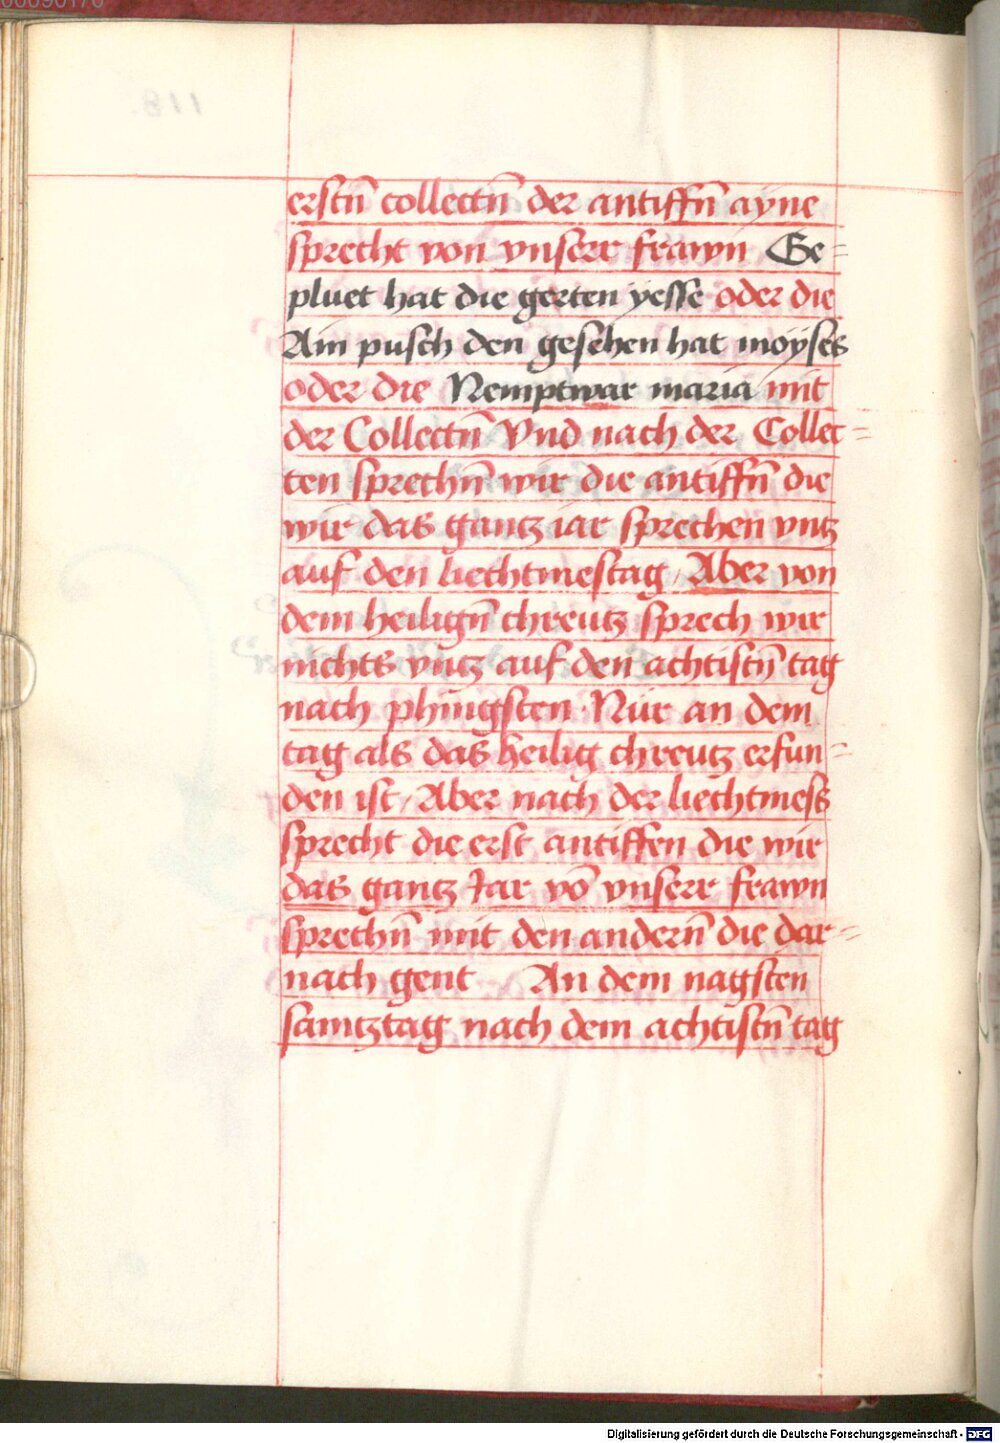 00090170
118.
erstn̄ collectn̄ der antiffn̄ ayne
sprecht von vnserr frawn Ge=
pluet hat die gerten yesse oder die
Ain pusch den gesehen hat moÿses
oder die Nemptwar maria mit
der Collectn̄ Vnd nach der Collec=
ten sprechn̄ wir die antiffn̄ die
wir das gantz iar sprechen vntz
auf den liechtmestag / Aber von
dem heilign̄ chreutz sprech wir
nichts vntz auf den achtistn̄ tag
nach phingsten · Nür an dem
tag als das heilig chreutz erfun=
den ist / Aber nach der liechtmess
sprecht die erst antiffen die wir
das gantz Jar vō vnserr frawn
sprechn̄ mit den andern̄ die dar=
nach gent An dem nagsten
samtztag nach dem achtistn̄ tag
Digitalisierung gefördert durch die Deutsche Forschungsgemeinschaft - DFG